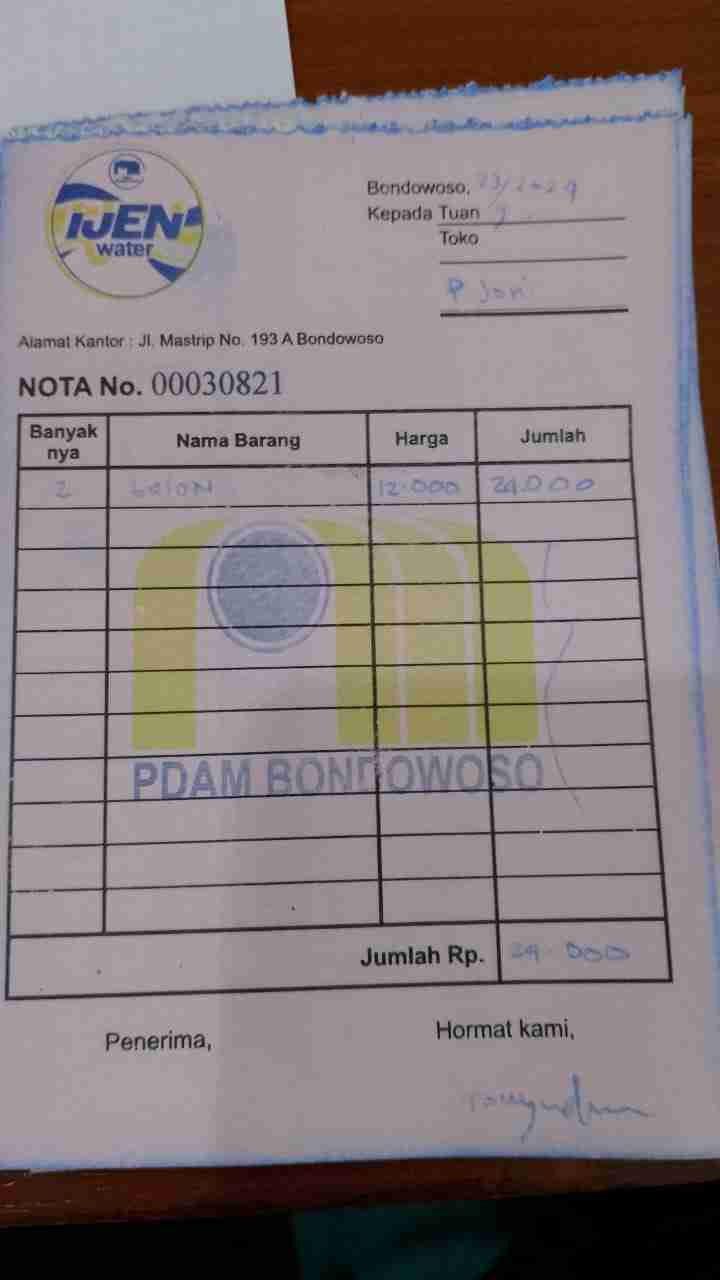 IJEN
water
Bondowoso, 23/2024
Kepada Tuan
Toko
P Jon
Alamat Kantor : Jl. Mastrip No. 193 A Bondowoso
NOTA No. 00030821
Banyak nya Nama Barang Harga Jumlah
2 galon 12.000 24.000
PDAM BONDOWOSO
Jumlah Rp. 24.000
Penerima, Hormat kami,